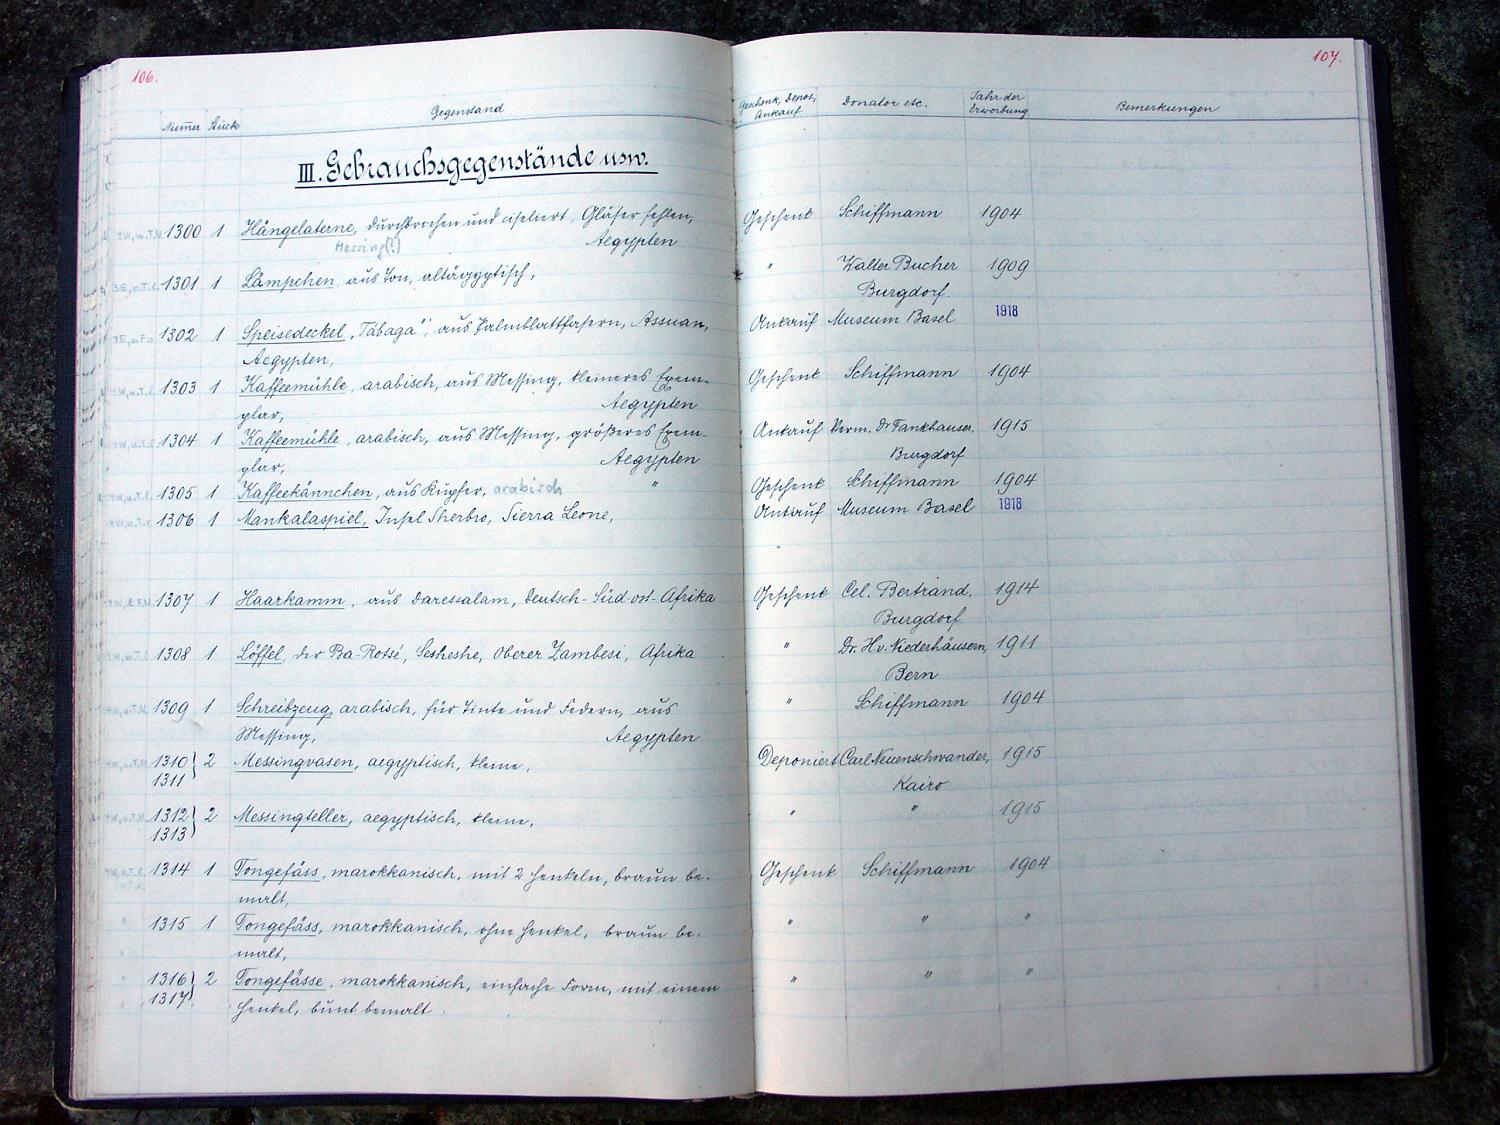 106.
Num̄er Stück Gegenstand
III. Gebrauchsgegenstände usw.
1300 1 Hängelaterne, durchbrochen und ciseliert, Gläser fehlen,
Messing(?) Aegypten
1301 1 Lämpchen aus Ton, altägyptisch,
1302 1 Speisedeckel „Tábaga", aus Palmblattfasern, Assuan,
Aegypten,
1303 1 Kaffeemühle, arabisch, aus Messing, kleineres Exem-
plar, Aegypten
1304 1 Kaffeemühle, arabisch, aus Messing, größeres Exem-
plar, Aegypten
1305 1 Kaffeekännchen, aus Kupfer, arabisch "
1306 1 Mankalaspiel, Insel Sherbro, Sierra Leone,
1307 1 Haarkamm, aus Daressalam, Deutsch-Süd-ost-Afrika
1308 1 Löffel der Ba-Rotsé, Sesheshe, Oberer Zambesi, Afrika
1309 1 Schreibzeug, arabisch, für Tinte und Federn, aus
Messing, Aegypten
1310 } 2 Messingvasen, aegyptisch, kleine,
1311
1312 } 2 Messingteller, aegyptisch, kleine,
1313
1314 1 Tongefäss, marokkanisch, mit 2 Henkeln, braun be-
malt,
1315 1 Tongefäss, marokkanisch, ohne Henkel, braun be-
malt,
1316 } 2 Tongefässe, marokkanisch, einfache Form, mit einem
1317 Henkel, bunt bemalt
107.
Geschenk, Depos, Donator etc. Jahr der Bemerkungen
Ankauf Erwerbung
Geschenk Schiffmann 1904
" Walter Bucher 1909
Burgdorf.
Ankauf Museum Basel 1918
Geschenk Schiffmann 1904
Ankauf Verm. Dr Fankhauser, 1915
Burgdorf
Geschenk Schiffmann 1904
Ankauf Museum Basel 1918
Geschenk Cel. Bertrand. 1914
Burgdorf
" Dr. H. v. Niederhäusern, 1911
Bern
" Schiffmann 1904
Deponiert Carl Neuenschwander, 1915
Kairo
" " 1915
Geschenk Schiffmann 1904
" " "
" " "